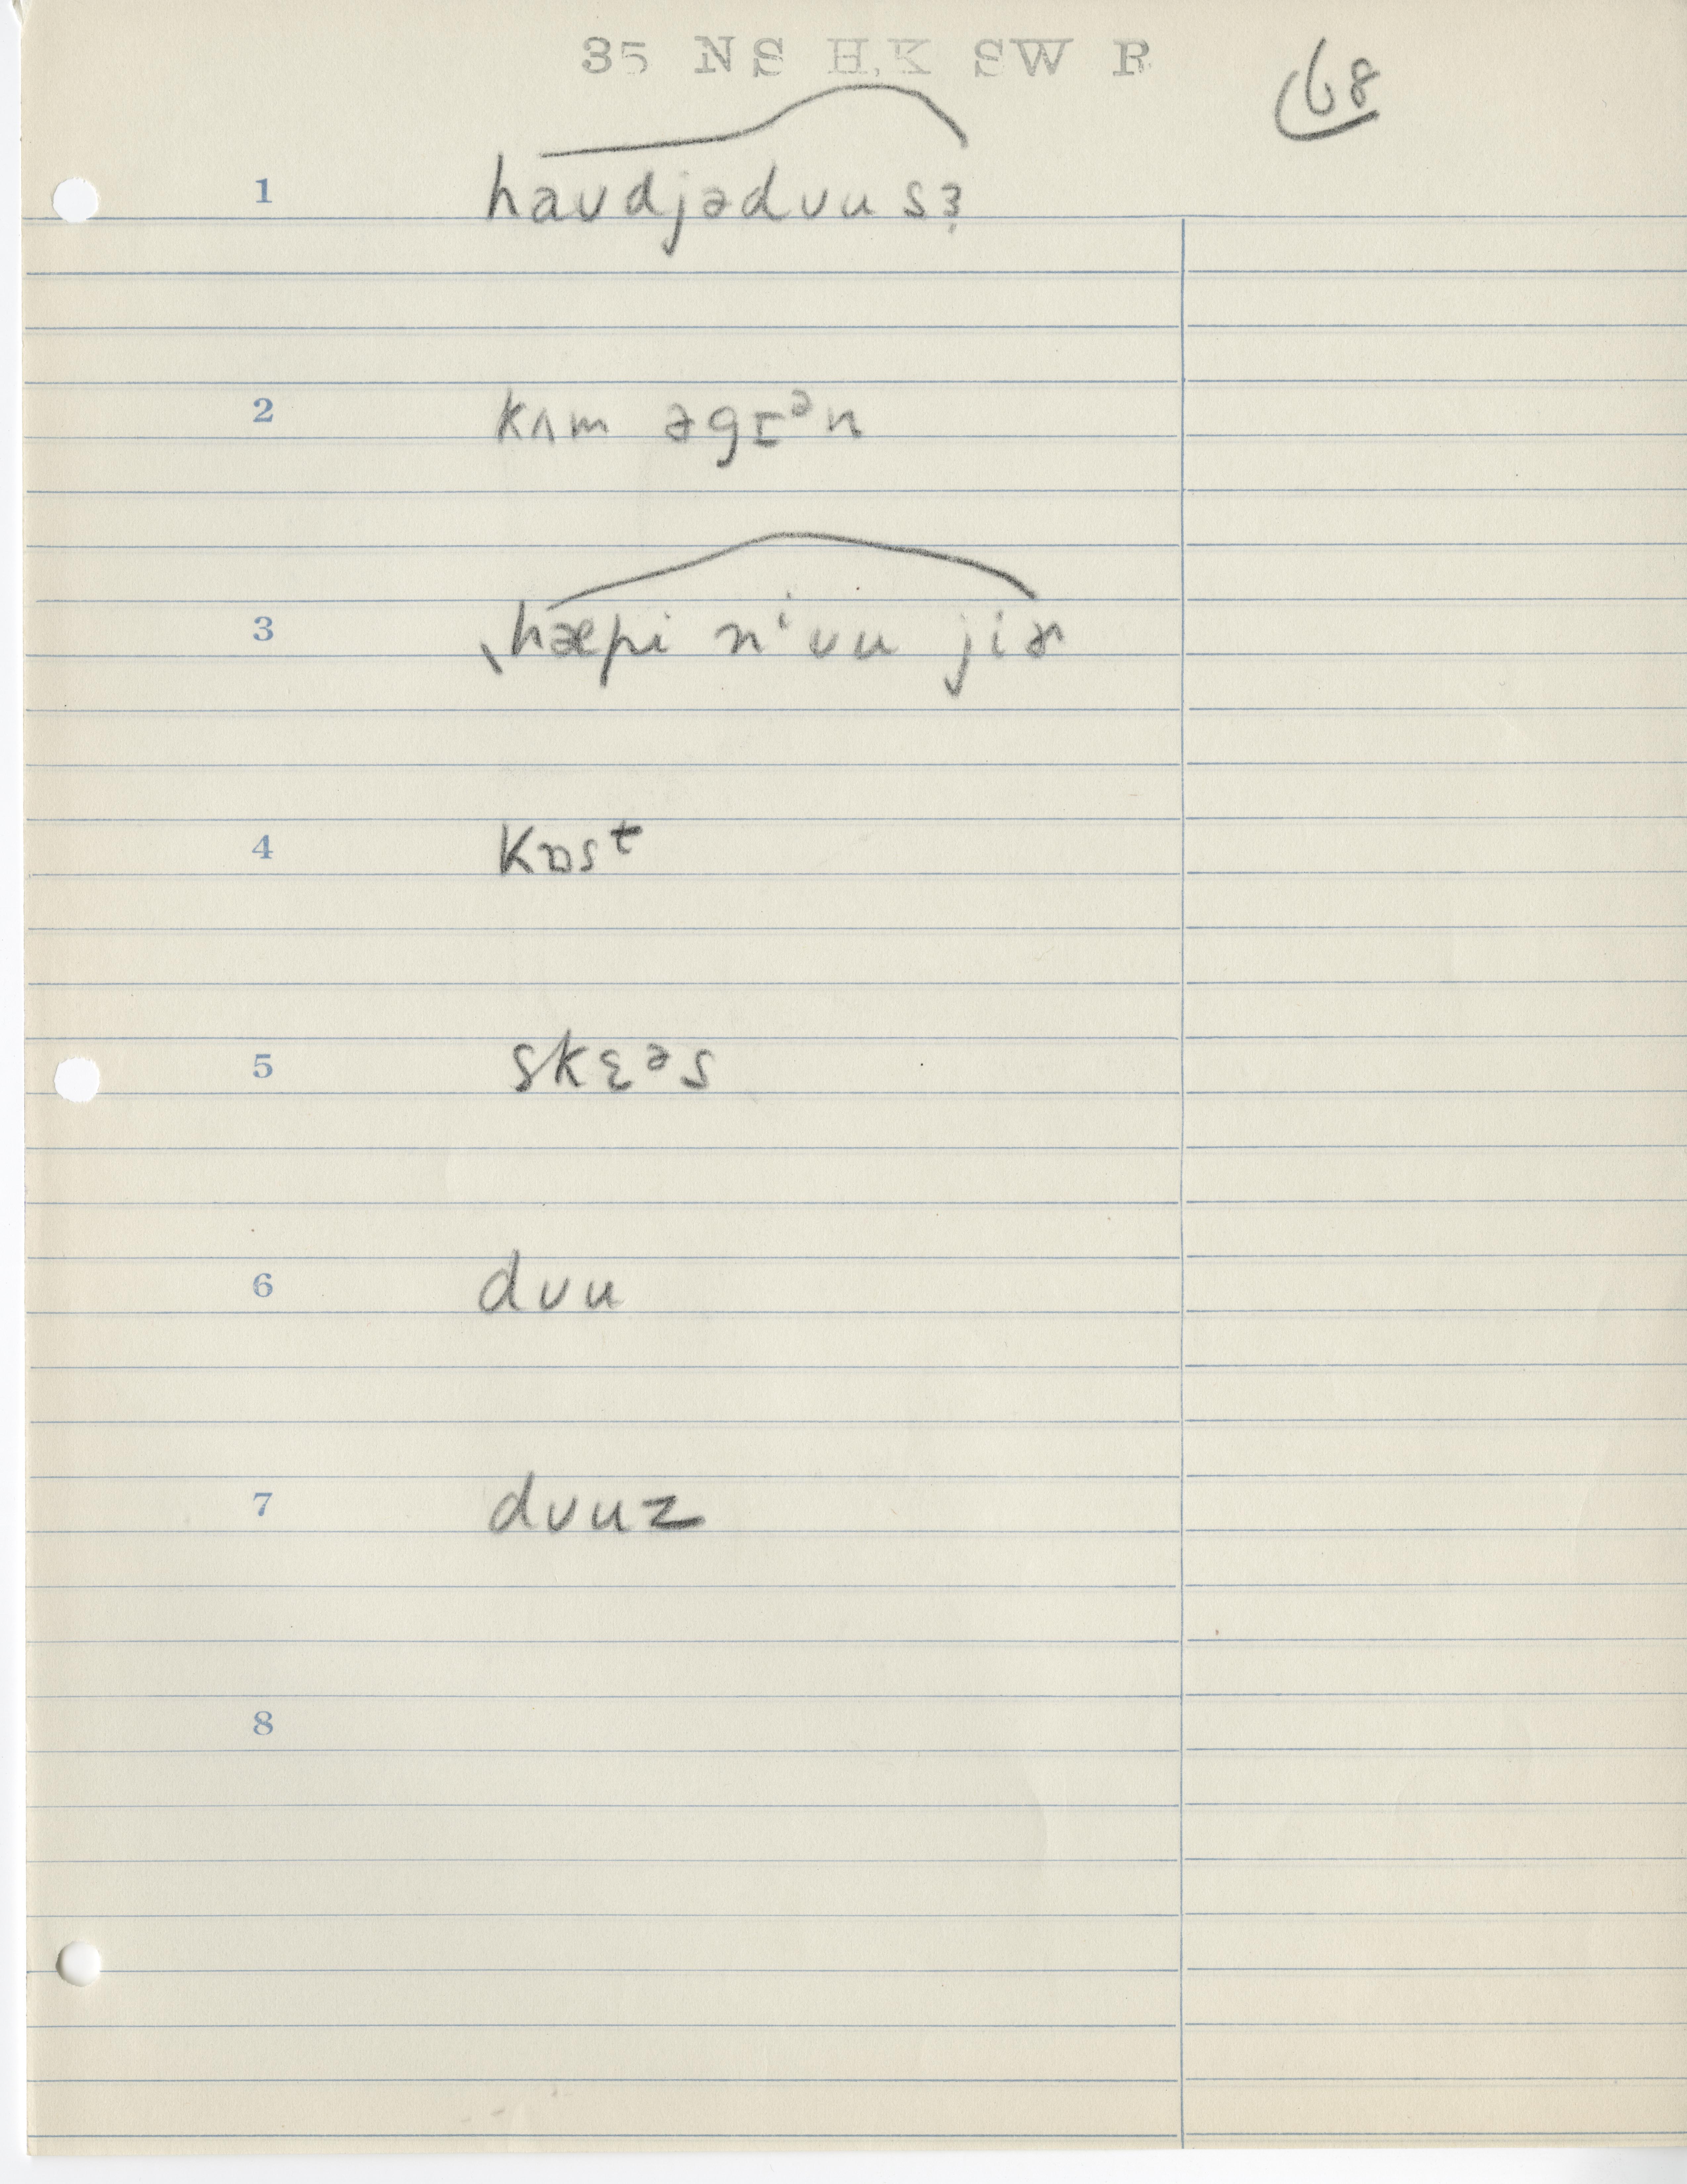 35 NS H.K SW R
68
1 haʊdjədʊu sɜ
2 kʌm əgɪᵊn
3 ˎhæpi nⁱʊu jiɚ
4 kɒsᵗ
5 skɛᵊs
6 dʊu
7 dʊuz
8